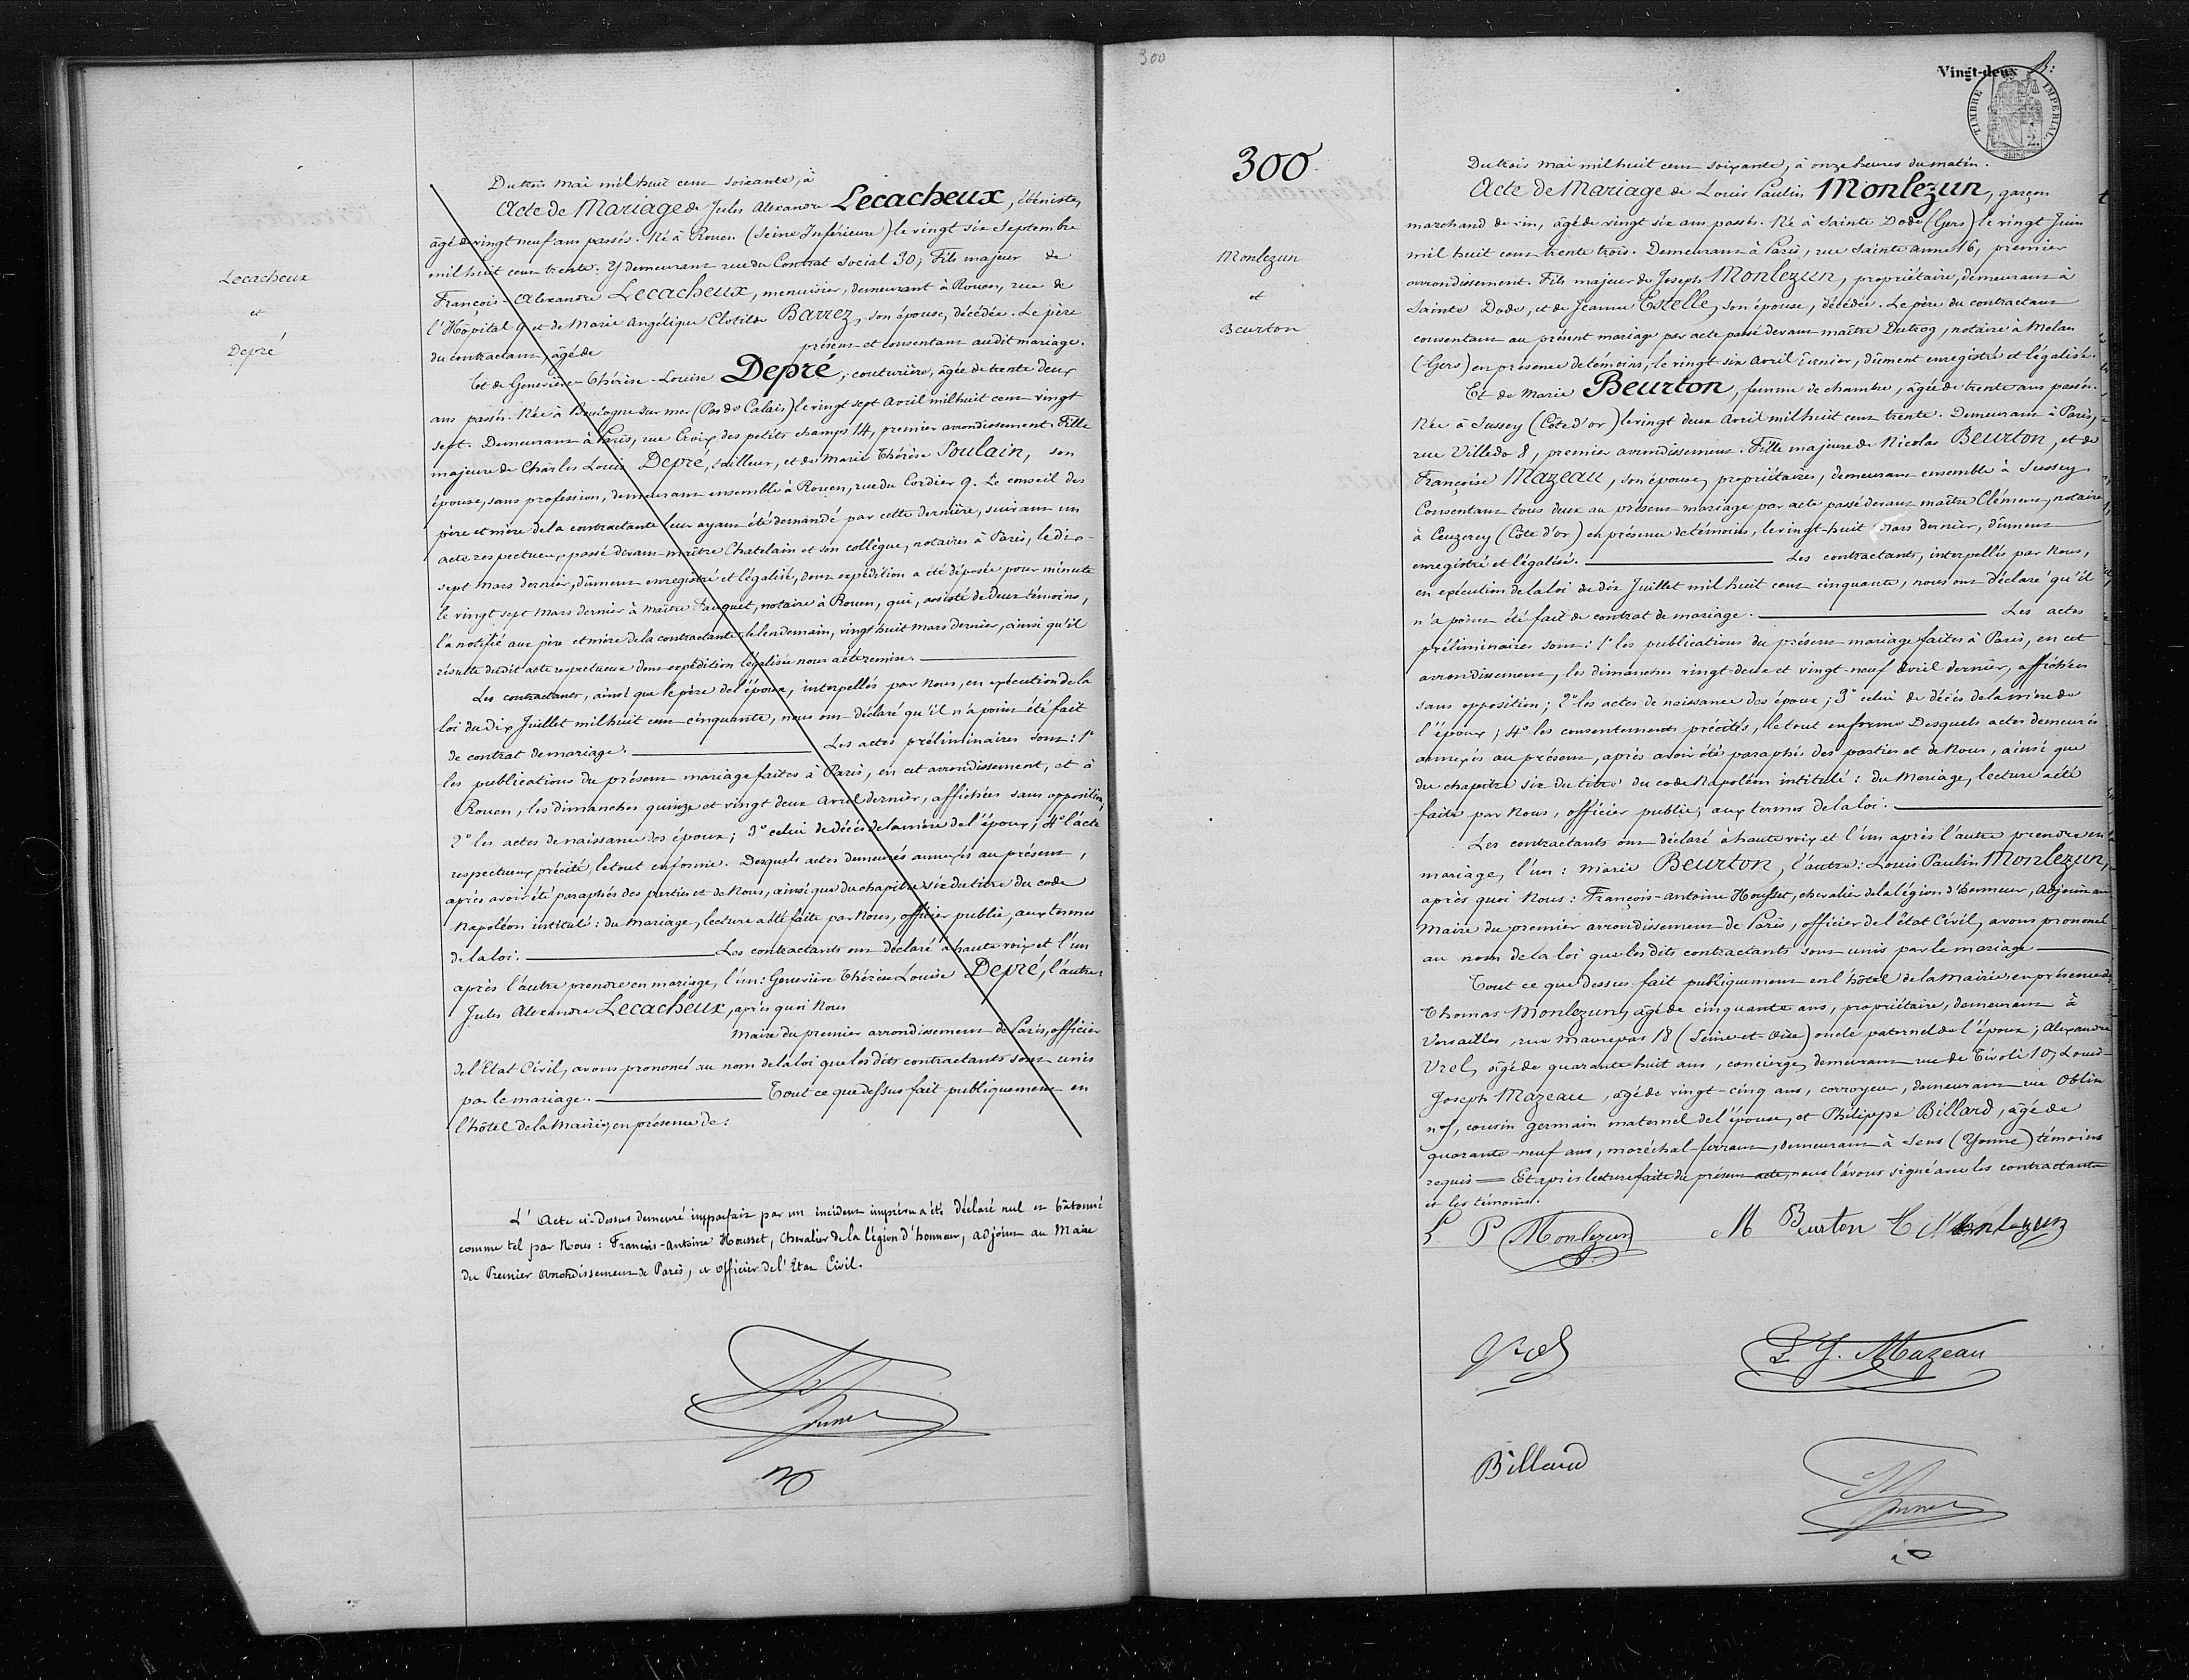 Lecacheux
et
Depré
Du trois mai mil huit cent soixante, à
Acte de Mariage de Jules Alexandre Lecacheux, ébéniste,
âgé de vingt neuf ans passés. Né à Rouen (Seine Inférieure) le vingt six Septembre
mil huit cent trente. Y demeurant rue du Contrat Social 30; Fils majeur de
François-Alexandre Lecacheux, menuisier, demeurant à Rouen, rue de
l'Hôpital 9 et de Marie Angélique Clotilde Barrez, son épouse, décédée. Le père
du contractant, âgé de présent et consentant audit mariage.
Et de Geneviève-Thérèse-Louise Depré, couturière, âgée de trente deux
ans passés. Née à Boulogne sur mer (Pas de Calais) le vingt sept Avril mil huit cent vingt
sept. Demeurant à Paris, rue Croix des petits champs 14, premier arrondissement. Fille
majeure de Charles Louis Depré, tailleur, et de Marie Thérèse Poulain, son
épouse, sans profession, demeurant ensemble à Rouen, rue du Cordier 9. Le conseil des
père et mère de la contractante leur ayant été demandé par cette dernière, suivant un
acte respectueux passé devant maître Chatelain et son collègue, notaires à Paris, le dix-
sept Mars dernier, dûment enregistré et légalisé, dont expédition a été déposée pour minute
le vingt sept Mars dernier à maître Fauquet, notaire à Rouen, qui, assisté de deux témoins,
l'a notifié aux père et mère de la contractante, le lendemain, vingt huit mars dernier, ainsi qu'il
résulte dudit acte respectueux dont expédition légalisée nous a été remise.
Les contractants, ainsi que le père de l'époux, interpellés par Nous, en exécution de la
loi du dix Juillet mil huit cent cinquante, nous ont déclaré qu'il n'a point été fait
de contrat de mariage. Les actes préliminaires sont: 1°
les publications du présent mariage faites à Paris, en cet arrondissement, et à
Rouen, les dimanches quinze et vingt deux avril dernier, affichées sans opposition,
2° les actes de naissance des époux; 3° celui de décès de la mère de l'époux; 4° l'acte
respectueux précité, le tout en forme. Desquels actes demeurés annexés au présent,
après avoir été paraphés des parties et de Nous, ainsi que du chapitre six du titre du code
Napoléon intitulé: du Mariage, lecture a été faite par Nous, officier public, aux termes
de la loi. Les contractants ont déclaré à haute voix et l'un
après l'autre prendre en mariage, l'un: Geneviève Thérèse Louise Depré, l'autre:
Jules Alexandre Lecacheux, après quoi Nous
Maire du premier arrondissement de Paris, officier
de l'Etat Civil, avons prononcé au nom de la loi que les dits contractants sont unis
par le mariage. Tout ce que dessus fait publiquement en
l'hôtel de la Mairie, en présence de:
L'Acte ci-dessus demeuré imparfait par un incident imprévu a été déclaré nul et bâtonné
comme tel par Nous: François-Antoine Housset, Chevalier de la légion d'honneur, adjoint au Maire
du Premier arrondissement de Paris, et officier de l'Etat Civil.
300
300
Monlezun
et
Beurton
Vingt-deux
TIMBRE IMPERIAL
2.
SEINE
Du trois mai mil huit cent soixante, à onze heures du matin.
Acte de Mariage de Louis Paulin Monlezun, garçon
marchand de vin, âgé de vingt six ans passés. Né à Sainte Dode (Gers) le vingt Juin
mil huit cent trente trois. Demeurant à Paris, rue Sainte anne 16, premier
arrondissement. Fils majeur de Joseph Monlezun, propriétaire, demeurant à
Sainte Dode, et de Jeanne Estelle, son épouse, décédée. Le père du contractant
consentant au présent mariage par acte passé devant maître Dutrog, notaire à Mélan
(Gers) en présence de témoins, le vingt six Avril dernier, dûment enregistré et légalisé.
Et de Marie Beurton, femme de chambre, âgée de trente ans passés.
Née à Sussey (Côte d'or) le vingt deux Avril mil huit cent trente. Demeurant à Paris,
rue Villedo 8, premier arrondissement. Fille majeure de Nicolas Beurton, et de
Françoise Mazeau, son épouse, propriétaires, demeurant ensemble à Sussey.
Consentant tous deux au présent mariage par acte passé devant maître Clément, notaire
à (Côte d'or) en présence de témoins, le vingt-huit Mars dernier, dûment
enregistré et légalisé. Les contractants, interpellés par Nous,
en exécution de la loi du dix Juillet mil huit cent cinquante, nous ont déclaré qu'il
n'a point été fait de contrat de mariage. Les actes
préliminaires sont: 1° les publications du présent mariage faites à Paris, en cet
arrondissement, les dimanches vingt-deux et vingt-neuf Avril dernier, affichées
sans opposition; 2° les actes de naissance des époux; 3° celui de décès de la mère de
l'époux; 4° les consentements précités, le tout en forme Desquels actes demeurés
annexés au présent, après avoir été paraphés des parties et de Nous, ainsi que
du chapitre six du titre du code Napoléon intitulé: du Mariage, lecture a été
faite par Nous, officier public, aux termes de la loi.
Les contractants ont déclaré à haute voix et l'un après l'autre prendre en
mariage, l'un: Marie Beurton, l'autre: Louis Paulin Monlezun,
après quoi Nous: François-Antoine Housset, chevalier de la légion d'honneur, Adjoint au
Maire du premier arrondissement de Paris, officier de l'état Civil, avons prononcé
au nom de la loi que les dits contractants sont unis par le mariage
Tout ce que dessus fait publiquement en l'hôtel de la Mairie en présence de:
Thomas Monlezun, âgé de cinquante ans, propriétaire, demeurant à
Versailles, rue Maurepas 18 (Seine-et-Oise) oncle paternel de l'époux; Alexandre
Vrel, âgé de quarante huit ans, concierge, demeurant rue de Tivoli 10, Louis-
Joseph Mazeau, âgé de vingt-cinq ans, corroyeur, demeurant rue Oblin
n° 1, cousin germain maternel de l'épouse, et Philippe Billard, âgé de
quarante-neuf ans, maréchal-ferrant, demeurant à Sens (Yonne) témoins
requis Et après lecture faite du présent acte, nous l'avons signé avec les contractants
et les témoins.
L P Monlezun M Burton T Monlezun
Vrel L J. Mazeau
Billard